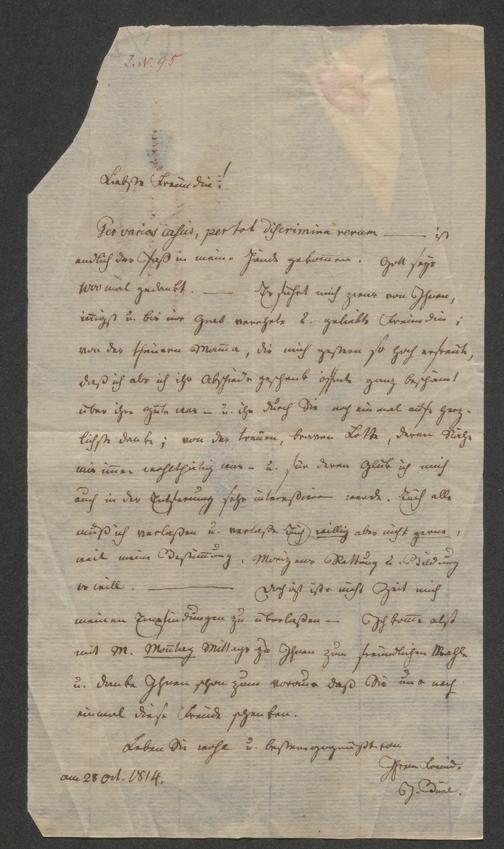 J.N. 95
Liebste Freundin!
Per varios casus, per tot discrimina rerum — ist
endlich der Paß in meine Hände gekommen. Gott seye
1000 mal gedankt. — Er führt mich zwar von Ihnen,
innigst u. bis ins Grab verehrte u. geliebte Freundin;
von der theuern Mamma, die mich gestern so hoch erfreute,
daß ich als ich ihr Abschieds geschenk öffnete ganz beschämt
über ihre Güte war – u. ihr durch Sie noch einmal aufs herz-
lichste danke; von der treuen, braven Lotte, deren
mir immer wohlthätig war – u. für deren Glük ich mich
auch in der Entfernung sehr interessiren werde. Euch alle
muß ich verlassen u. verlasse Euch willig aber nicht gerne,
weil meine Bestimmung, Morizens Rettung u. Bildung
es will. — Doch ist izt nicht Zeit mich
meinen Empfindungen zu überlassen — Ich komme also
mit M. Montag Mittags zu Ihnen zum freundlichen Mahle
u. danke Ihnen schon zum voraus daß Sie uns noch
einmal diese Freude schenken.
Leben Sie wohl u. bestens gegrüßt von
Ihrem Freund.
am 28 Oct. 1814.